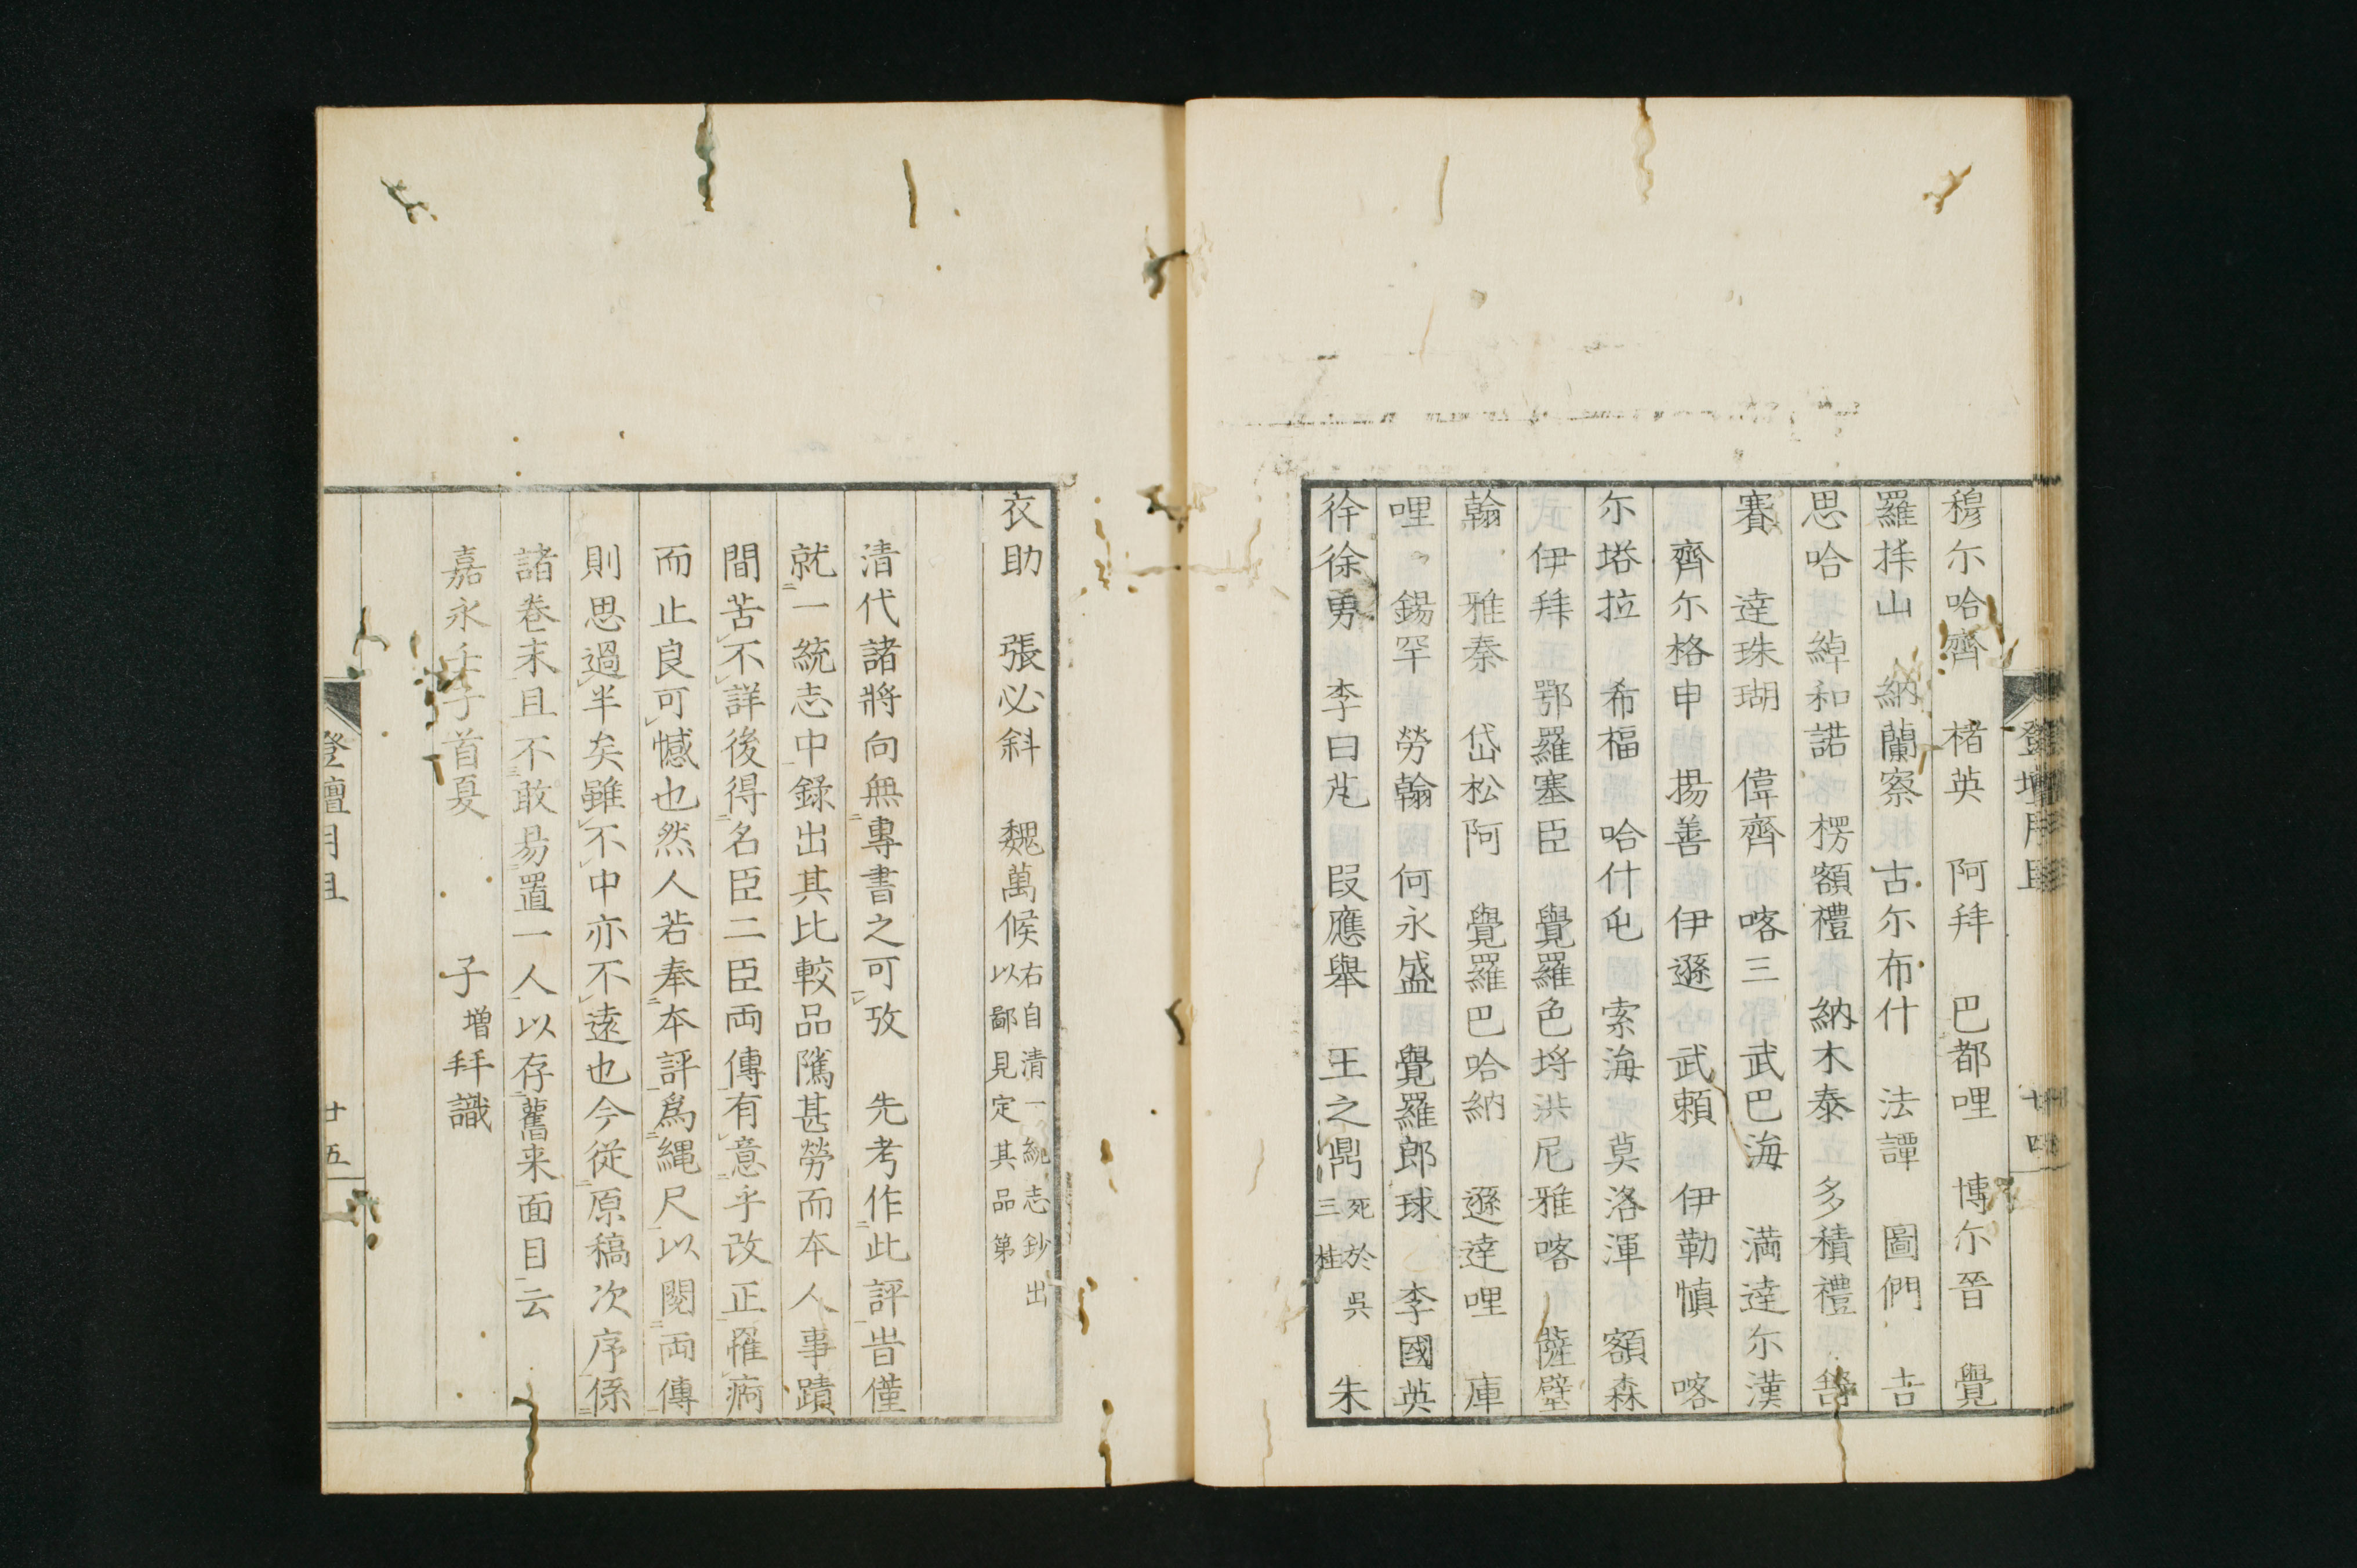 穆尓哈齊 楮英 阿拜 巴都哩 博尓晉 覺
羅拝山 納蘭察 古尓布什 法譚 圖們 吉
思哈 綽和諾 楞額禮 納木泰 多積禮
賽 達珠瑚 偉齊 喀三 武巴海 満達尓漢
齊尓格申 揚善 伊遜 武頼 伊勒慎 喀
尓塔拉 希福 哈什屯 索海 莫洛渾 額森
伊拜 鄂羅塞臣 覺羅色埓 洪尼雅喀 薩璧
翰 雅秦 岱松阿 覺羅巴哈納 遜達哩 庫
哩 錫罕 勞翰 何永盛 覺羅郎球 李國英
徐勇 李曰芃 叚應舉 王之鼎 死於呉三桂 朱
登壇月旦 廿四
衣助 張必斜 魏萬候 右自清一統志鈔出以鄙見定其品第
清代諸將向無專書之可攷 先考作此評昔僅
就一統志中録出其比較品隲甚勞而本人事蹟
間苦不詳後得名臣二臣両傳有意乎改正罹病
而止良可憾也然人若奉本評爲縄尺以閲両傳
則思過半矣雖不中亦不遠也今從原稿次序係
諸巻末且不敢易置一人以存舊来面目云
嘉永壬子首夏 子増拜識
登壇月旦 廿五